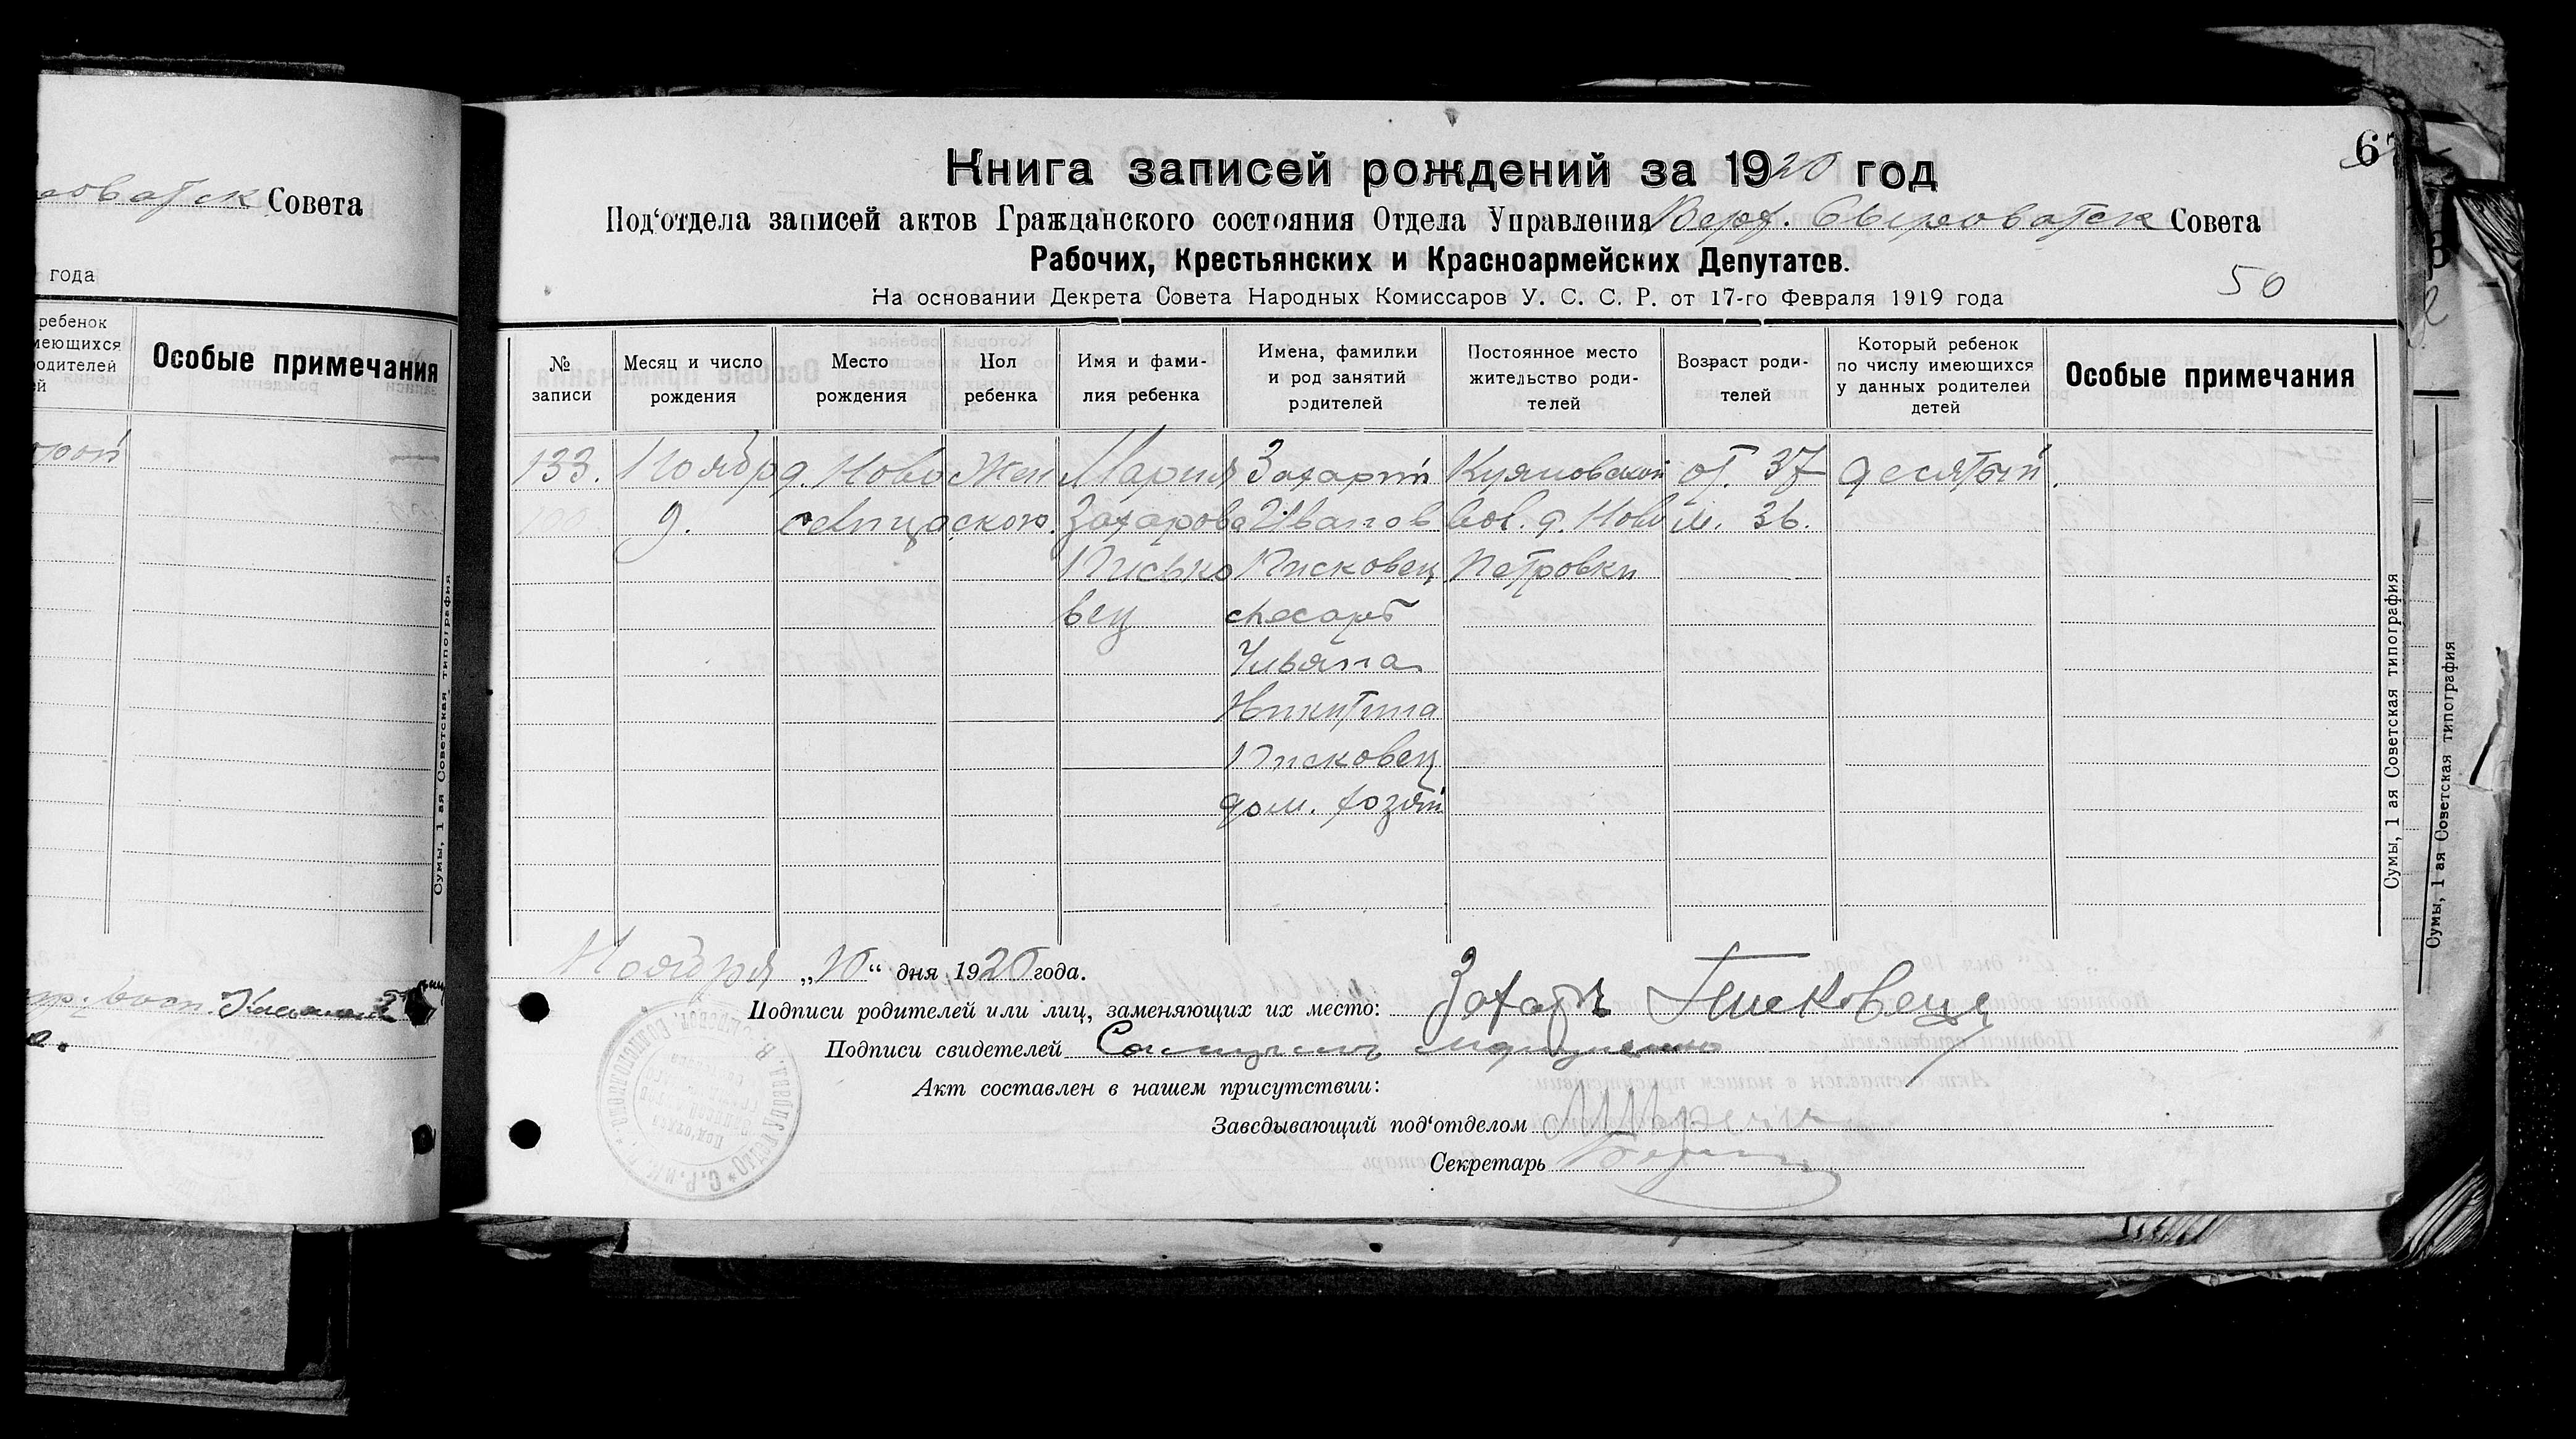 Совета
года
ребенок
меющихся
родителей
ей
Особые примечания
Сумы, 1 ая Советская типография
67
Книга записей рождений за 1920 год
Под‘отдела записей актов Гражданского состояния Отдела Управления Верх. Сыроватск Совета
Рабочих, Крестьянских и Красноармейских Депутатов.
50
На основании Декрета Совета Народных Комиссаров У. С. С. Р. от 17-го Февраля 1919 года
№ записи
Месяц и число рождения
Место рождения
Пол ребенка
Имя и фами-
лия ребенка
Имена, фамилии
и род занятий
родителей
Постоянное место
жительство роди-
телей
Возраст роди-
телей
Который ребенок
по числу имеющихся
у данных родителей
детей
Особые примечания
133.
Ноябр
9.
д. Ново
Жен
ского.
Мария
Захарова
Писько
вец
Захарий
Иванов
Писковец
слесарь
Ульяна
Никитина
Писковец
дом. хозяй
Кияновской
вол. д. Ново
Петровки
от. 37
м. 36.
десятый.
Сумы, 1 ая Советская типография
Сумы, 1 ая Советская типография
Ноября „10“ дня 1920 года.
Подписи родителей или лиц, заменяющих их место: Захаръ Писковець
Подписи свидетелей
Акт составлен в нашем присутствии:
Заведывающий под‘отделом
Секретарь